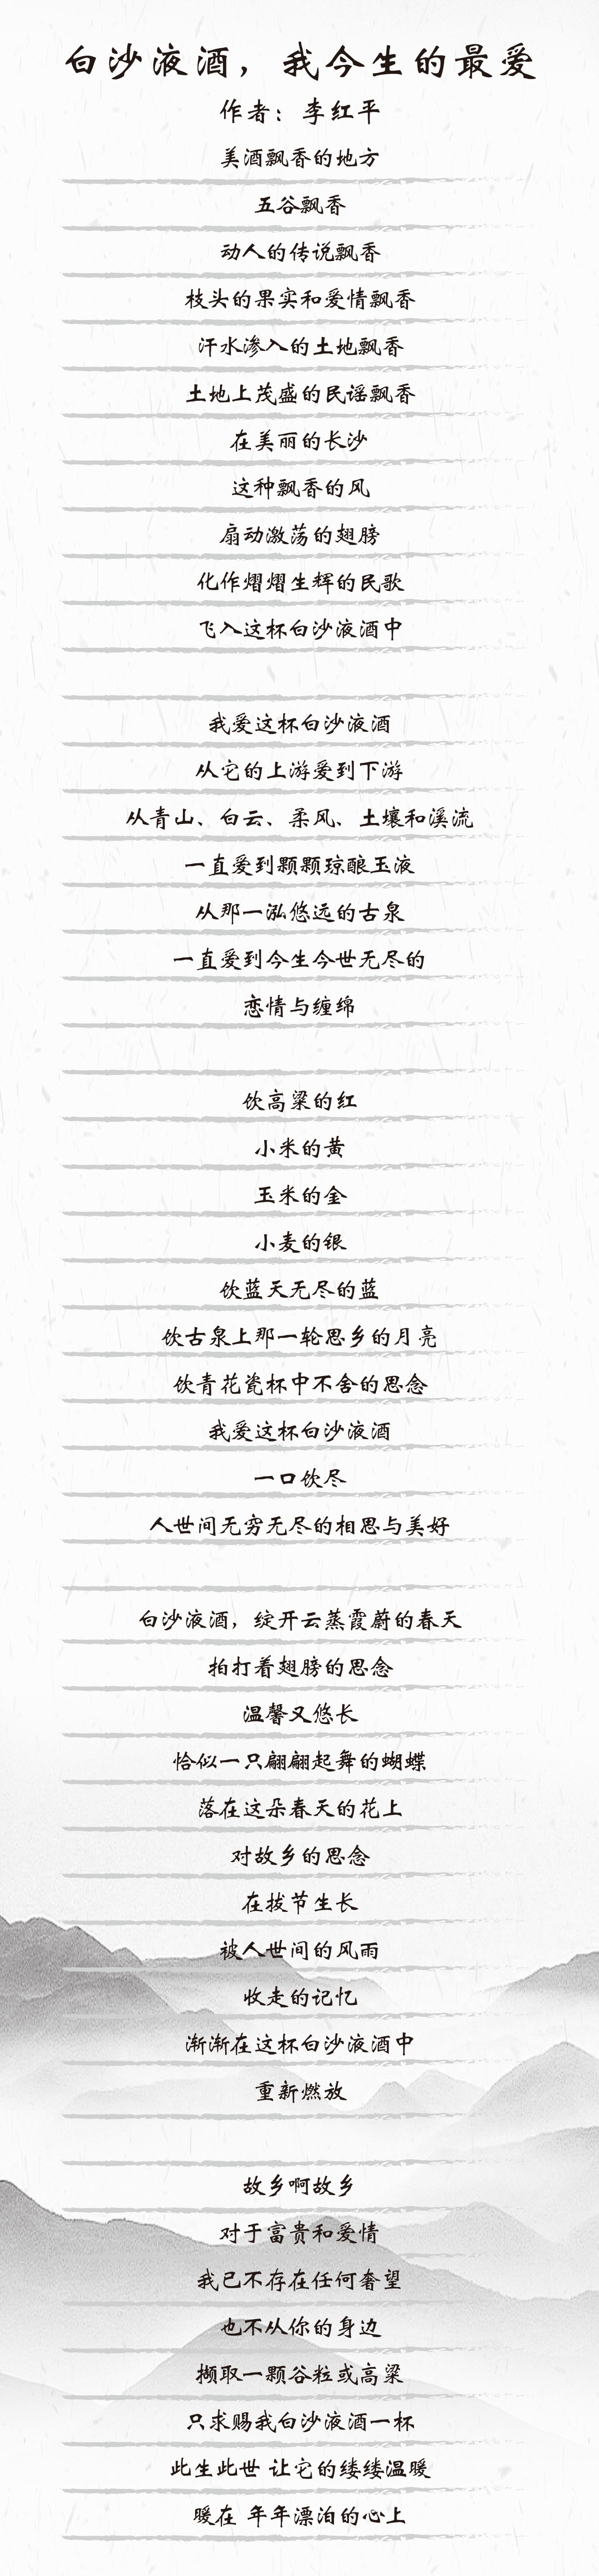 白沙液酒，我今生的最爱
作者：李红平
美酒飘香的地方
五谷飘香
动人的传说飘香
枝头的果实和爱情飘香
汗水渗入的土地飘香
土地上茂盛的民谣飘香
在美丽的长沙
这种飘香的风
扇动激荡的翅膀
化作熠熠生辉的民歌
飞入这杯白沙液酒中
我爱这杯白沙液酒
从它的上游爱到下游
从青山、白云、柔风、土壤和溪流
一直爱到颗颗琼酿玉液
从那一泓悠远的古泉
一直爱到今生今世无尽的
恋情与缠绵
饮高粱的红
小米的黄
玉米的金
小麦的银
饮蓝天无尽的蓝
饮古泉上那一轮思乡的月亮
饮青花瓷杯中不舍的思念
我爱这杯白沙液酒
一口饮尽
人世间无穷无尽的相思与美好
白沙液酒，绽开云蒸霞蔚的春天
拍打着翅膀的思念
温馨又悠长
恰似一只翩翩起舞的蝴蝶
落在这朵春天的花上
对故乡的思念
在拔节生长
被人世间的风雨
收走的记忆
渐渐在这杯白沙液酒中
重新燃放
故乡啊故乡
对于富贵和爱情
我已不存在任何奢望
也不从你的身边
撷取一颗谷粒或高粱
只求赐我白沙液酒一杯
此生此世 让它的缕缕温暖
暖在 年年漂泊的心上